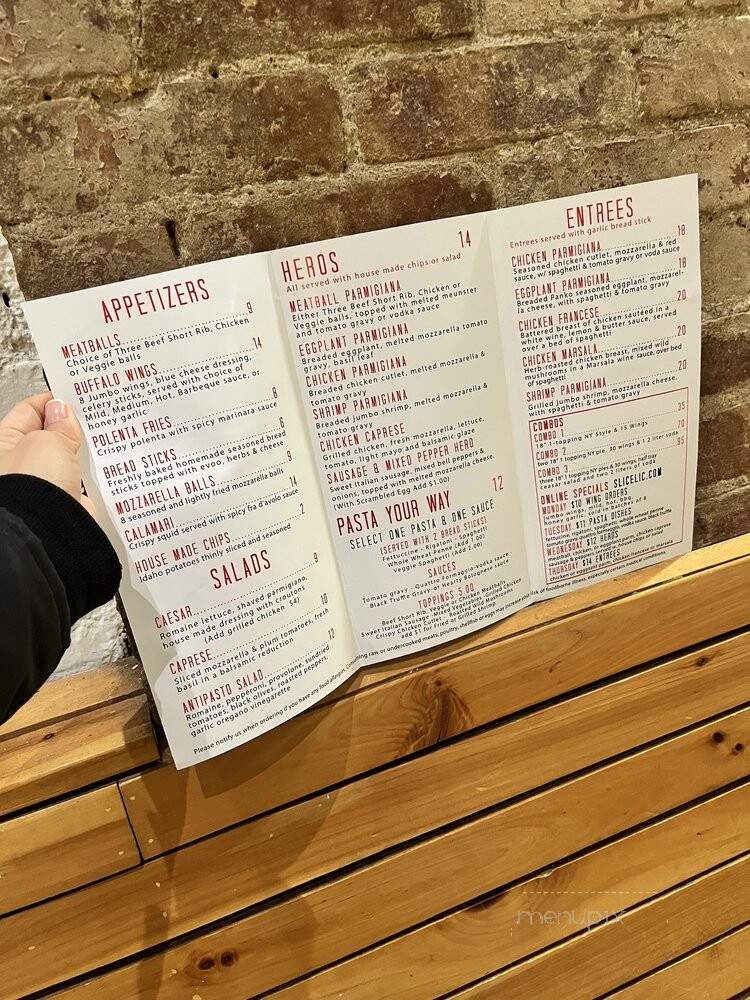 APPETIZERS
MEATBALLS 9
Choice of Three Beef Short Rib, Chicken
or Veggie balls
BUFFALO WINGS 14
8 Jumbo wings, blue cheese dressing,
celery sticks, served with choice of
Mild, Medium, Hot, Barbeque sauce, or
honey garlic
POLENTA FRIES 8
Crispy polenta with spicy marinara sauce
BREAD STICKS 6
Freshly baked homemade seasoned bread
sticks topped with evoo, herbs & cheese
MOZZARELLA BALLS 9
8 seasoned and lightly fried mozzarella balls
CALAMARI 14
Crispy squid served with spicy fra d'avolo sauce
HOUSE MADE CHIPS 2
Idaho potatoes thinly sliced and seasoned
SALADS
CAESAR 9
Romaine lettuce, shaved parmigiano,
house made dressing with croutons
(Add grilled chicken $4)
CAPRESE 10
Sliced mozzarella & plum tomatoes, fresh
basil in a balsamic reduction
ANTIPASTO SALAD 12
Romaine, pepperoni, provolone, sundried
tomatoes, black olives, roasted peppers,
garlic oregano vinegarette
HEROS 14
All served with house made chips or salad
MEATBALL PARMIGIANA
Either Three Beef Short Rib, Chicken or
Veggie balls, topped with melted muenster
and tomato gravy or vodka sauce
EGGPLANT PARMIGIANA
Breaded eggplant, melted mozzarella tomato
gravy, basil leaf
CHICKEN PARMIGIANA
Breaded chicken cutlet, melted mozzarella &
tomato gravy
SHRIMP PARMIGIANA
Breaded jumbo shrimp, melted mozzarella &
tomato gravy
CHICKEN CAPRESE
Grilled chicken, fresh mozzarella, lettuce,
tomato, light mayo and balsamic glaze
SAUSAGE & MIXED PEPPER HERO
Sweet Italian sausage, mixed bell peppers &
onions, topped with melted mozzarella cheese.
(With Scrambled Egg Add $1.00)
PASTA YOUR WAY 12
SELECT ONE PASTA & ONE SAUCE
(SERVED WITH 2 BREAD STICKS)
Fettuccine - Rigatoni - Spaghetti
Whole Wheat Penne (Add 1.00)
Veggie Spaghetti (Add 2.00)
SAUCES
Tomato gravy - Quattro Formaggio-Vodka sauce
Black Truffle Gravy or Hearty Bolognese sauce
TOPPINGS 5.00
Beef Short Rib, Veggie or Chicken Meatballs
Sweet Italian Sausage - Mixed Vegetables, Mushrooms
Crispy Chicken Cutlet - Roasted or Grilled Chicken
add $1 for Fried or Grilled Shrimp
ENTREES
Entrees served with garlic bread stick
CHICKEN PARMIGIANA 18
Seasoned chicken cutlet, mozzarella & red
sauce, w/ spaghetti & tomato gravy or voda sauce
EGGPLANT PARMIGIANA 18
Breaded Panko seasoned eggplant, mozzarel-
la cheese, with spaghetti & tomato gravy
CHICKEN FRANCESE 20
Battered breast of chicken sautéed in a
white wine, lemon & butter sauce, served
over a bed of spaghetti
CHICKEN MARSALA 20
Herb-roasted chicken breast, mixed wild
mushrooms in a Marsala wine sauce, over bed
of spaghetti
SHRIMP PARMIGIANA 20
Grilled jumbo shrimp, mozzarella cheese,
with spaghetti & tomato gravy
COMBOS
COMBO 1 35
18" 1-topping NY Style & 15 Wings
COMBO 2 70
two 18" 1 topping NY pie, 30 wings & 1 2 liter soda
COMBO 3 95
three 18" 1 topping NY pies & 30 wings, half tray
ceasar salad and two 2 liters of soda
ONLINE SPECIALS SLICELIC.COM
MONDAY $10 WING ORDERS
jumbo wings, mild, hot, bbq,
honey garlic - sold in batches of
TUESDAY $11 PASTA DISHES
fettuccine, rigatoni, spaghetti, whole wheat penne
tomato gravy, vodka sauce, black truffle
WEDNESDAY $12 HEROS
meatball, chicken, eggplant parm, chicken caprese
sausage & peppers w/ house chips or salad
THURSDAY $14 ENTREES
chicken or eggplant parm, chicken francese or marsala
Please notify us when ordering if you have any food allergies. Consuming raw or undercooked meats, poultry, shellfish or eggs may increase your risk of foodborne illness, especially certain medical conditions.
menupix